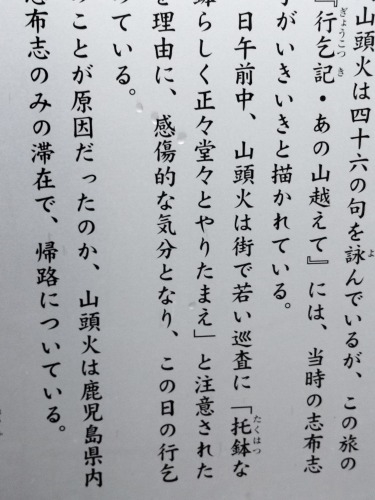 山頭火は四十六の句を詠んでいるが、この旅の
『行乞記・あの山越えて』には、当時の志布志
がいきいきと描かれている。
日午前中、山頭火は街で若い巡査に「托鉢な
らしく正々堂々とやりたまえ」と注意された
理由に、感傷的な気分となり、この日の行乞
ている。
のことが原因だったのか、山頭火は鹿児島県内
布志のみの滞在で、帰路についている。